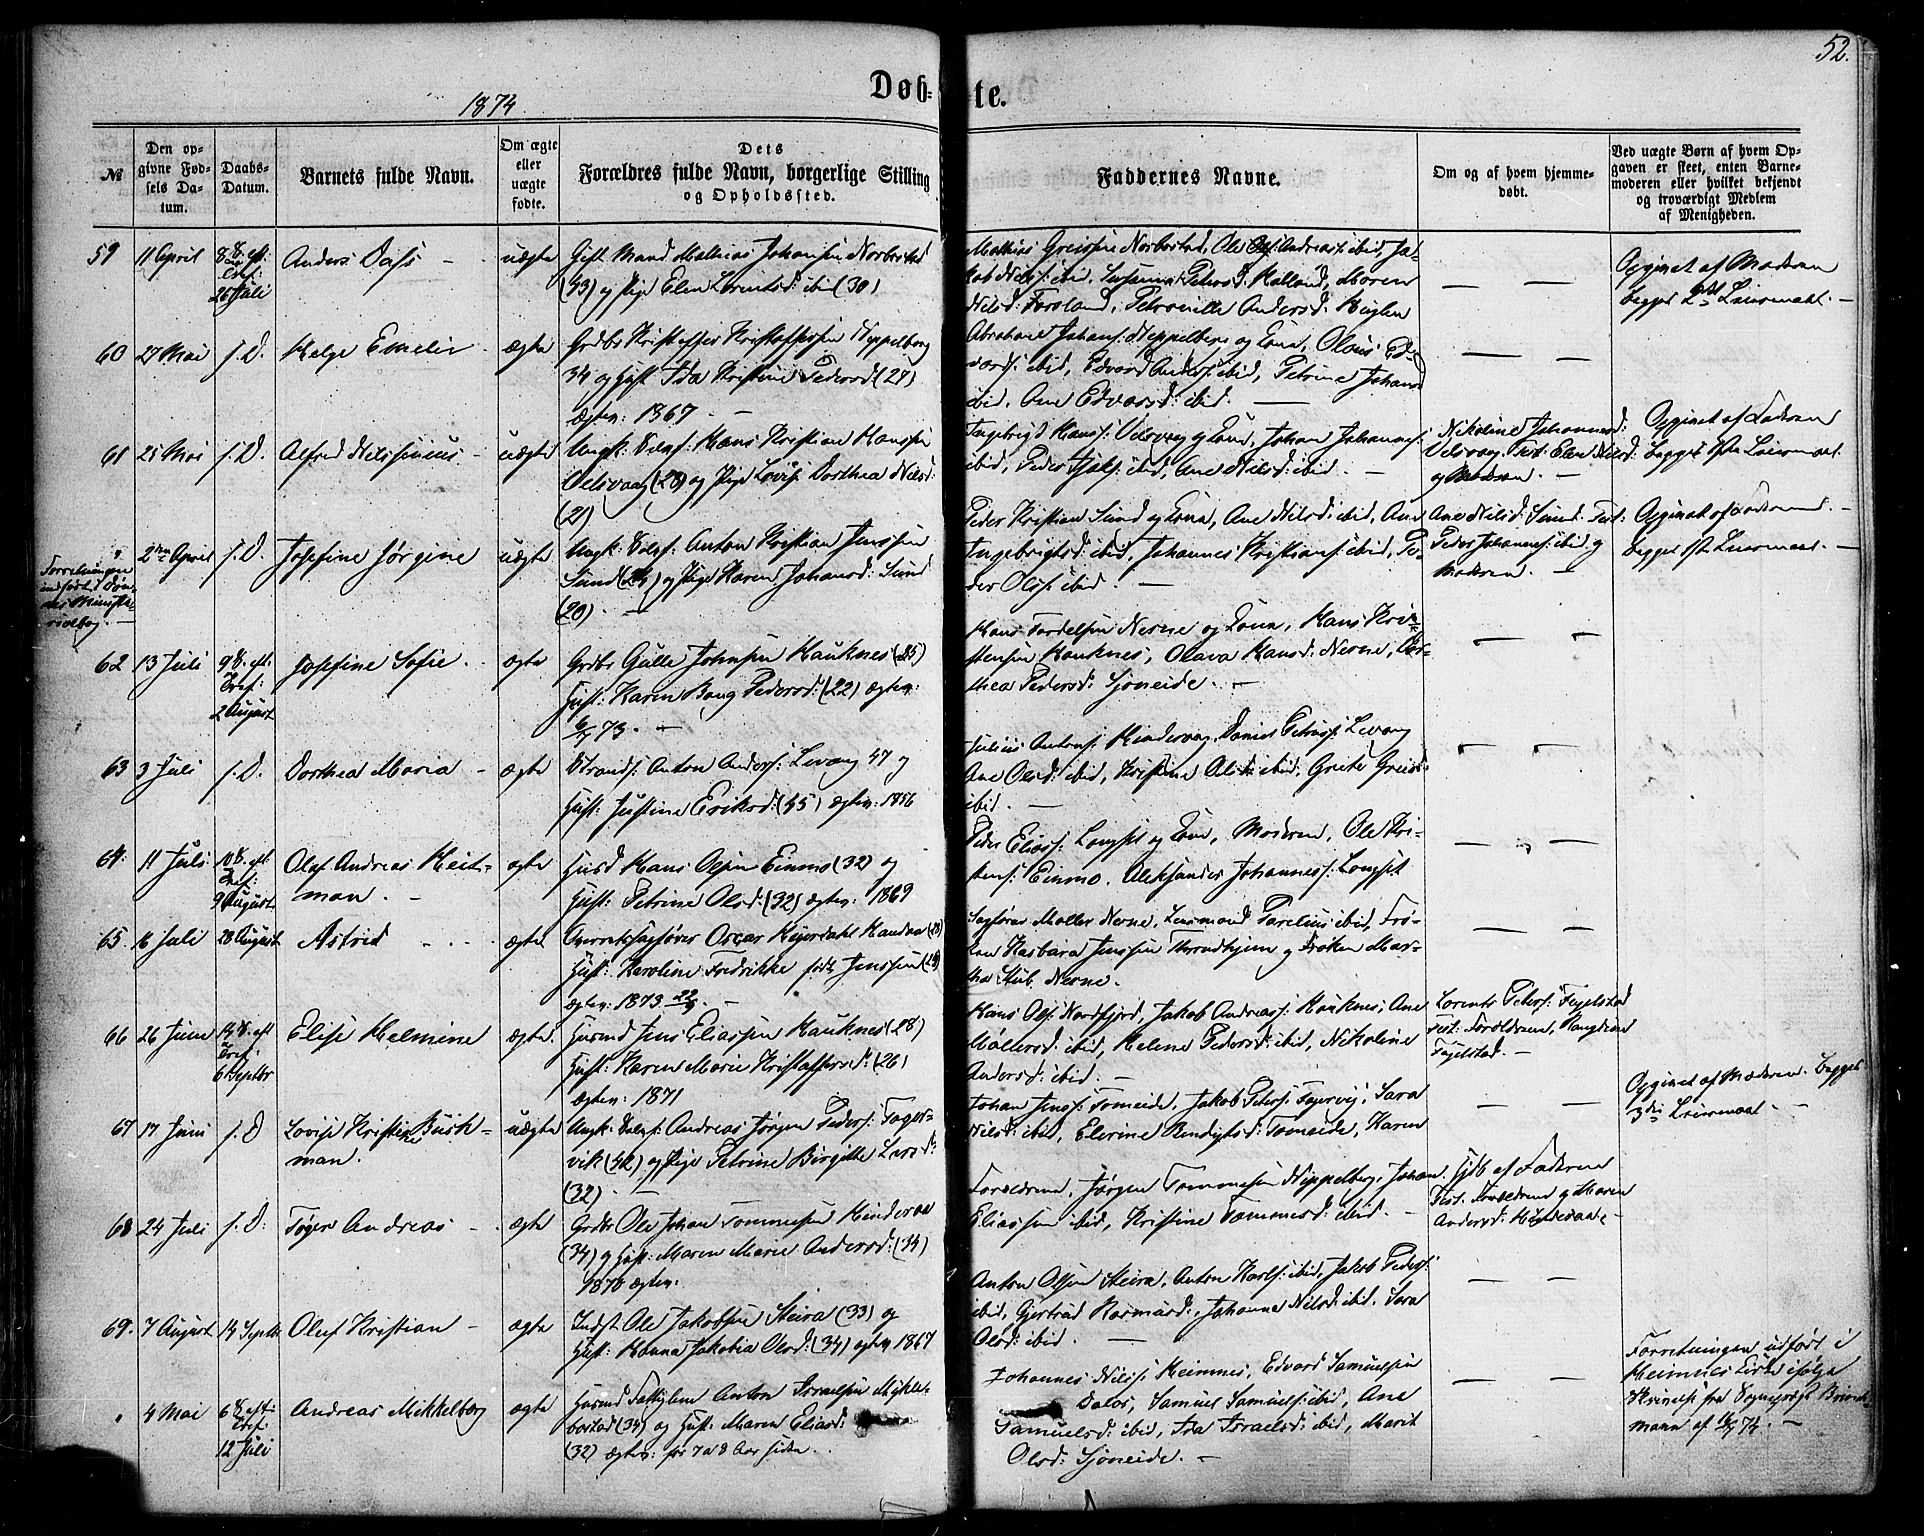 52.
1874
Døb-
te.
№
Den op-
givne Fød-
sels Da-
tum.
Daabs-
Datum.
Barnets fulde Navn.
Om ægte
eller
uægte
fødte.
Dets
Forældres fulde Navn, borgerlige Stilling
og Opholdssted.
Faddernes Navne.
Om og af hvem hjemme-
døbt.
Ved uægte Børn af hvem Op-
gaven er skeet, enten Barne-
moderen eller hvilket bekjendt
og troværdigt Medlem
af Menigheden.
59 11 April 8 S. eft: Tref: 26 Juli
Anders Dass
uægte
Gift Mand Mathias Johansen
(33) og Pige Elen Lorentsd: ibid (30)
Mathias Greissen Ole Andreas: ibid, Ja-
kob Nilss: ibid, Susanna Petersd: Maren
Nilsd: Forsland, Petronille Andersd:
Opgivet af Moderen
begges 2det Leiermaal. —
60 27 Mai s. D. Helge Emelie ægte
Grdbr Kristoffer Kristoffersen Nippelberg
34 og Hust. Ida Kristine Pedersd (27)
ægtev: 1867. —
Abraham Johans: Nippelberg og Kona, Olaus Ed-
vards: ibid, Edvard Anders: ibid, Petrine Johansd:
ibid, Ane Edvardsd: ibid. —
61 25 Mai s. D. Alfred Nilssinius uægte
Ungk: Hans Kristian Hanssen
Velsvaag (28) og Pige Lovise Dorthea Nilsd:
(21)
Ingebrigt Hans: Velsvag og Kona, Johan Johannes:
ibid, Peder ibid, Ane Nilsd: ibid. —
Nikoline Johannesd:
Velsvag Test: Elen Nilsd:
og Moderen. —
Opgivet af Faderen
begges 1ste Leiermaal.
Forretningen
indført i Døn-
nes Ministe-
rialbog. —
2den April s. D. Josefine Jørgine uægte
Ungk: Anton Kristian Jenssen
Sund (24) og Pige Karen Johansd: Sund
(20). —
Peder Kristian Sund og Kona, Ane Nilsd: ibid, Ane
Ingebrigtsd: ibid, Johannes Kristians: ibid, Pe-
der Ols: ibid. —
Ane Nilsd: Sund. Test:
Peder Johannes: ibid og
Moderen. —
Opgivet af Faderen. —
begges 1ste Leiermaal. —
62 13 Juli 9 S. eft: Tref: 2 August
Josefine Sofie. ægte
Grdbr Gulle Johnsen Hauknes (25)
Hust: Karen Bang Pedersd: (22) ægtev:
73. —
Hans Tordelsen Nesne og Kona, Hans Kri-
stensen Hauknes, Olava Hansd: Nesne, Dor-
thea Pedersd: Sjoneide. —
63 3 Juli s. D. Dorthea Maria ægte
Strands: Anton Anders: Levang 47 og
Hust: Justine Eriksd: (45) ægtev: 1856
Julius Antons: Daniel Petrus: Levang
Ane Olsd: ibid, Kristine Olsd: ibid, Grete
ibid. —
64. 11 Juli 10 S. eft: Tref: 9 August
Olaf Andreas Heit-
man. — ægte
Husmd Hans Olsen Einmo (32) og
Hust: Petrine Olsd: (32) ægtev: 1869
Peder Elias: Langset og Kona, Moderen, Ole Kri-
stens: Einmo. Aleksander Johannes: Langset
65 16 Juli 28 August Astrid ægte
Overretssagfører Oscar
Hust: Karoline Fredrikke født Jenssen
ægtev: 1873 22/9. —
Sagfører Møller Nesne, Lensmand Parelius ibid, Frø-
ken Barbara Jenssen Throndhjem og Frøken Mar-
tha Stub, Nesne.
66 26 Juni 14 S. eft Tref: 6 Septbr
Elise Helmine ægte.
Husmd Jens Eliassen Hauknes (28)
Hust: Karen Marie Kristoffersd: (26)
ægtev: 1871
Hans Ols: Nordfjord, Jakob Andreas: Hauknes, Ane
Møllersd: ibid, Helene Pedersd: ibid, Nikoline
Andersd: ibid. —
Lorents Peters: Fagelstad
Test: Forældrene,
Fagelstad. —
67 17 Juni s. D Lovise Kristine Busk-
man. uægte
Ungk: Andreas Jørgen Peders: Fager-
vik (42) og Pige Petrine Birgitte Larsd:
(32) —
Johan Jens: Tomeide, Jakob Peters: Fagervig, Sara
Nilsd: ibid, Elerine Bendigtsd: Tomeide, Karen
Opgivet af Moderen. begges
3die Leiermaal —
68 24 Juli s. D: Tøger Andreas ægte
Grdbr Ole Johan Tommesen
(34) og Hust: Maren Marie Andersd: (34)
1870 ægtev:
Forældrene, Jørgen Tommesen Nippelberg, Johan
Eliassen ibid, Kristine Tommesd: ibid. —
Hjdb af Faderen
Test. Forældrene og Maren
Andersd:
69. 7 August 14 Septbr Oluf Kristian — ægte
Indst Ole Jakobsen Steira (33) og
Hust: Hanna Jakobia Olsd: (34) ægtev 1867
Anton Olsen Steira, Anton Karls: ibid, Jakob Peders:
ibid, Gjertrud Rasmusd:, Johanna Nilsd: ibid, Sara
Olsd: ibid. —
4 Mai 6 S. eft: Tref: 12 Juli
Andreas Mikkelborg ægte
Husmd Anton Israelsen Mykle-
bostad (34) og Hust: Maren Eliasd:
(32) ægtev: for 7 a 8 Aar siden.
Johannes Nils: Heimnes, Edvard Samuelsen
Dalos, Samuel Samuels: ibid, Ane
Samuelsd: ibid, Ida Israelsd: ibid, Marit
Olsd: Sjoneide. —
Forretningen udført i
Heimnes Kirke ifølge
fra Sognepræst Brink-
mann af 74. —